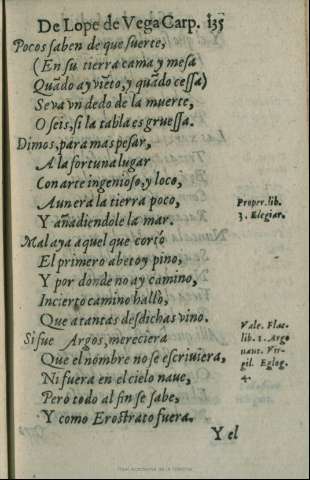 De Lope de Vega Carp. 135
Pocos saben de que suerte,
(En su tierra cama y mesa
Quãdo ay viẽto, y quãdo cessa)
Se va vn dedo de la muerte,
O seis, si la tabla es gruessa.
Dimos, para mas pesar,
A la fortuna lugar
Con arte ingenioso, y loco,
Aun era la tierra poco,
Proper. lib.
Y añadiendole la mar.
3. Elegiar.
Mal aya aquel que cortò
El primero abeto y pino,
Y por donde no ay camino,
Incierto camino hallò,
Que a tantas desdichas vino.
Vale. Flac.
Si fue Argos, mereciera
lib. 1. Argo
Que el nombre no se escriuiera,
naut. Vir-
gil. Eglog.
Ni fuera en el cielo naue,
4.
Pero todo al fin se sabe,
Y como Erostrato fuera.
Y el